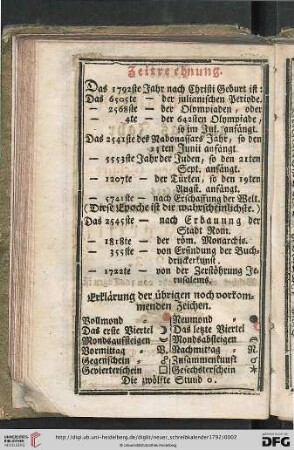 Zeitrechnung.
Das 1792ste Jahr nach Christi Geburt ist:
Das 6505te — der julianischen Periode.
— 2568ste — der Olympiaden, oder
— 4te — der 642sten Olympiade,
so im Jul. anfängt.
Das 2541ste des Nabonassars Jahr, so den
21ten Junii anfängt.
— 5553ste Jahr der Juden, so den
Sept. anfängt.
— 1207te — der Türken, so den 19ten
Augst. anfängt.
— 5741ste — nach Erschaffung der Welt.
(Diese Epoche ist die wahrscheinlichste.)
Das 2545ste — nach Erbauung der
Stadt Rom.
— 1818te — der röm. Monarchie.
— 355ste — von Erfindung der Buch-
druckerkunst.
— 1722te — von der Zerstöhrung Je-
rusalems.
Erklärung der übrigen noch vorkom-
menden Zeichen.
Vollmond Neumond
Das erste Viertel Das letzte Viertel
Mondsaufsteigen Mondsabsteigen
Vormittag V. Nachmittag N.
Gegenschein ☍ Zusammenkunft ☌
Gevierterschein □ Gesechsterschein *
Die zwölfte Stund 0.
http://digi.ub.uni-heidelberg.de/diglit/neuer_schreibkalender1792/0002
© Universitätsbibliothek Heidelberg
UNIVERSITÄTS-
BIBLIOTHEK
HEIDELBERG
DFG